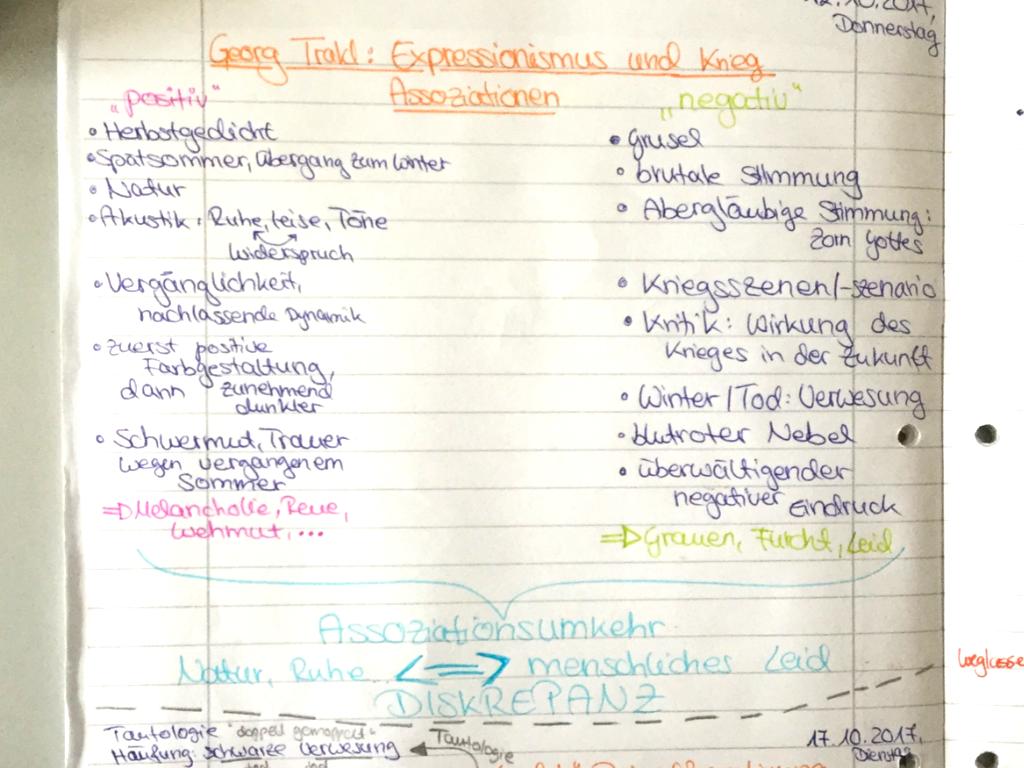 12.10.2017,
Donnerstag
Georg Trakl: Expressionismus und Krieg
Assoziationen
„positiv“
• Herbstgedicht
• Spätsommer, Übergang zum Winter
• Natur
• Akustik: Ruhe, leise, Töne
Widerspruch
• Vergänglichkeit,
nachlassende Dynamik
• zuerst positive
Farbgestaltung,
dann zunehmend
dunkler
• Schwermut, Trauer
wegen vergangenem
Sommer
⇒ Melancholie, Reue,
Wehmut, ...
„negativ“
• Grusel
• brutale Stimmung
• Abergläubige Stimmung:
Zorn Gottes
• Kriegsszenen/-szenario
• Kritik: Wirkung des
Krieges in der Zukunft
• Winter/Tod: Verwesung
• blutroter Nebel
• überwältigender
negativer Eindruck
⇒ Grauen, Furcht, Leid
Assoziationsumkehr
Natur, Ruhe ⟺ menschliches Leid
DISKREPANZ
17.10.2017,
Dienstag
Tautologie "doppelt gemoppelt"
Häufung: schwarze Verwesung
Tautologie